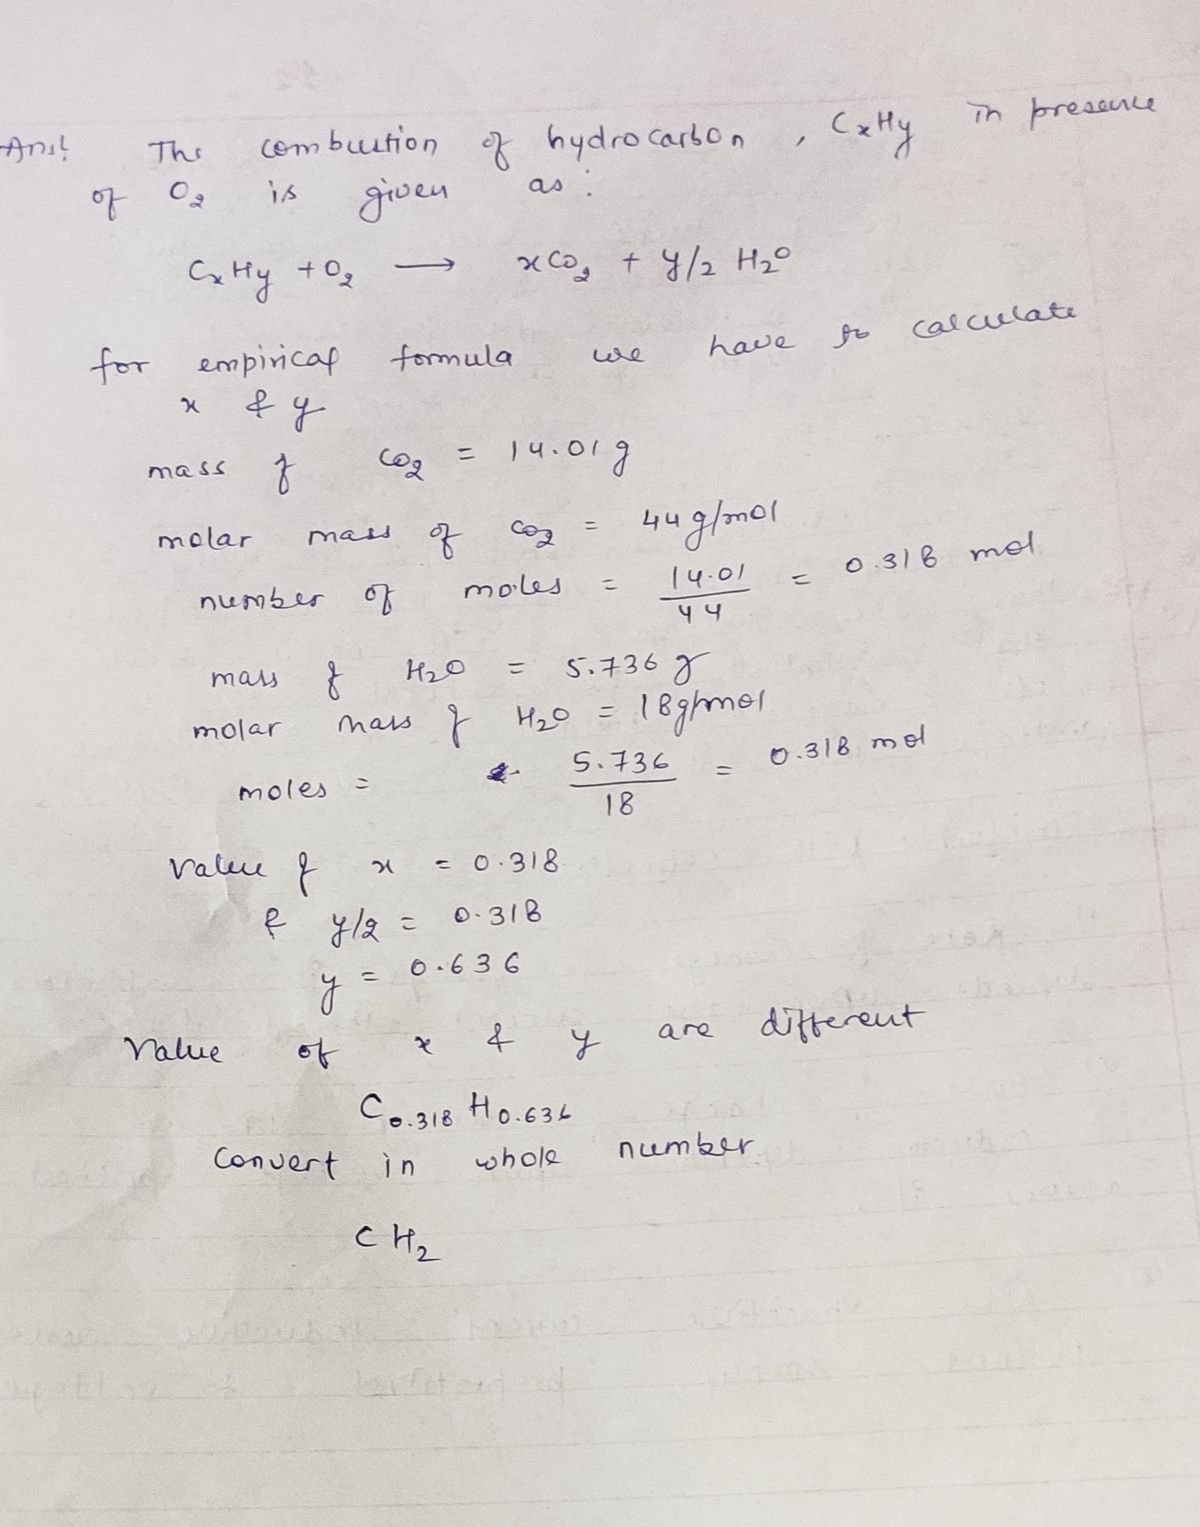 Ans! The combustion of hydrocarbon, CxHy in presence
of O2 is given as:
CxHy + O2 → xCO2 + y/2 H2O
for empirical formula we have to calculate
x & y
mass of CO2 = 14.01 g
molar mass of CO2 = 44 g/mol
number of moles = 14.01/44 = 0.318 mol
mass of H2O = 5.736 g
molar mass of H2O = 18 g/mol
moles = 5.736/18 = 0.318 mol
Value of x = 0.318
& y/2 = 0.318
y = 0.636
Value of x & y are different
C0.318 H0.636
Convert in whole number
CH2